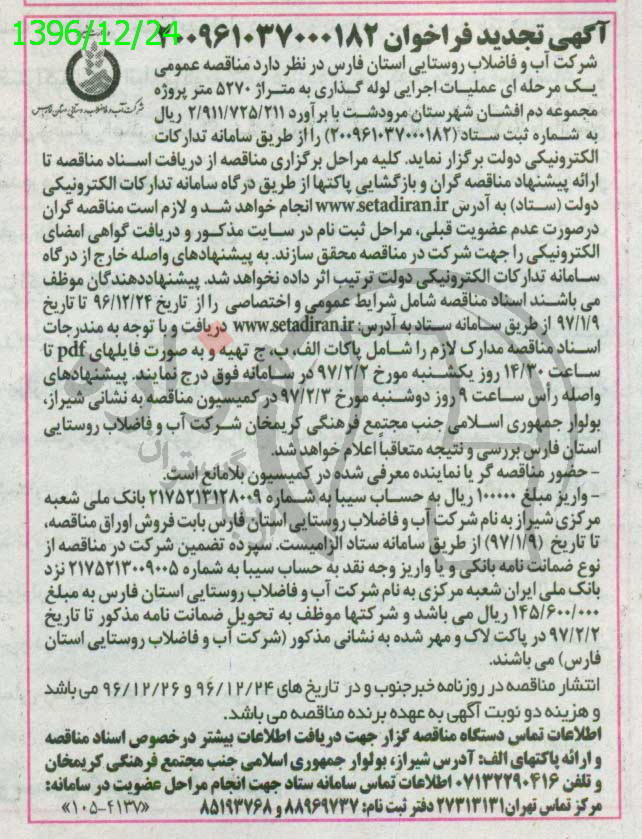 1396/12/24
آگهی تجدید فراخوان ۲۰۰۹۶۱۰۳۷۰۰۰۱۸۲
شرکت آب و فاضلاب روستایی استان فارس
شرکت آب و فاضلاب روستایی استان فارس در نظر دارد مناقصه عمومی
یک مرحله ای عملیات اجرایی لوله گذاری به متراژ ۵۲۷۰ متر پروژه
مجموعه دم افشان شهرستان مرودشت با برآورد ۲/۹۱۱/۷۲۵/۲۱۱ ریال
به شماره ثبت ستاد (۲۰۰۹۶۱۰۳۷۰۰۰۱۸۲) را از طریق سامانه تدارکات
الکترونیکی دولت برگزار نماید. کلیه مراحل برگزاری مناقصه از دریافت اسناد مناقصه تا
ارائه پیشنهاد مناقصه گران و بازگشایی پاکتها از طریق درگاه سامانه تدارکات الکترونیکی
دولت (ستاد) به آدرس www.setadiran.ir انجام خواهد شد و لازم است مناقصه گران
درصورت عدم عضویت قبلی، مراحل ثبت نام در سایت مذکور و دریافت گواهی امضای
الکترونیکی را جهت شرکت در مناقصه محقق سازند. به پیشنهادهای واصله خارج از درگاه
سامانه تدارکات الکترونیکی دولت ترتیب اثر داده نخواهد شد. پیشنهاددهندگان موظف
می باشند اسناد مناقصه شامل شرایط عمومی و اختصاصی را از تاریخ ۹۶/۱۲/۲۴ تا تاریخ
۹۷/۱/۹ از طریق سامانه ستاد به آدرس: www.setadiran.ir دریافت و با توجه به مندرجات
اسناد مناقصه مدارک لازم را شامل پاکات الف، ب، ج تهیه و به صورت فایلهای pdf تا
ساعت ۱۴/۳۰ روز یکشنبه مورخ ۹۷/۲/۲ در سامانه فوق درج نمایند. پیشنهادهای
واصله رأس ساعت ۹ روز دوشنبه مورخ ۹۷/۲/۳ در کمیسیون مناقصه به نشانی شیراز،
بولوار جمهوری اسلامی جنب مجتمع فرهنگی کریمخان شرکت آب و فاضلاب روستایی
استان فارس بررسی و نتیجه متعاقباً اعلام خواهد شد.
- حضور مناقصه گر یا نماینده معرفی شده در کمیسیون بلامانع است.
- واریز مبلغ ۱۰۰۰۰۰ ریال به حساب سیبا به شماره ۲۱۷۵۲۱۳۱۲۸۰۰۹ بانک ملی شعبه
مرکزی شیراز به نام شرکت آب و فاضلاب روستایی استان فارس بابت فروش اوراق مناقصه،
تا تاریخ (۹۷/۱/۹) از طریق سامانه ستاد الزامیست. سپرده تضمین شرکت در مناقصه از
نوع ضمانت نامه بانکی و یا واریز وجه نقد به حساب سیبا به شماره ۲۱۷۵۲۱۳۰۰۹۰۰۵ نزد
بانک ملی ایران شعبه مرکزی به نام شرکت آب و فاضلاب روستایی استان فارس به مبلغ
۱۴۵/۶۰۰/۰۰۰ ریال می باشد و شرکتها موظف به تحویل ضمانت نامه مذکور تا تاریخ
۹۷/۲/۲ در پاکت لاک و مهر شده به نشانی مذکور (شرکت آب و فاضلاب روستایی استان
فارس) می باشند.
انتشار مناقصه در روزنامه خبرجنوب و در تاریخ های ۹۶/۱۲/۲۴ و ۹۶/۱۲/۲۶ می باشد
و هزینه دو نوبت آگهی به عهده برنده مناقصه می باشد.
اطلاعات تماس دستگاه مناقصه گزار جهت دریافت اطلاعات بیشتر درخصوص اسناد مناقصه
و ارائه پاکتهای الف: آدرس شیراز، بولوار جمهوری اسلامی جنب مجتمع فرهنگی کریمخان
و تلفن ۰۷۱۳۲۲۹۰۴۱۶ اطلاعات تماس سامانه ستاد جهت انجام مراحل عضویت در سامانه:
مرکز تماس تهران ۲۷۳۱۳۱۳۱ دفتر ثبت نام: ۸۸۹۶۹۷۳۷ و ۸۵۱۹۳۷۶۸ «۱۰۵-۴۱۳۷»